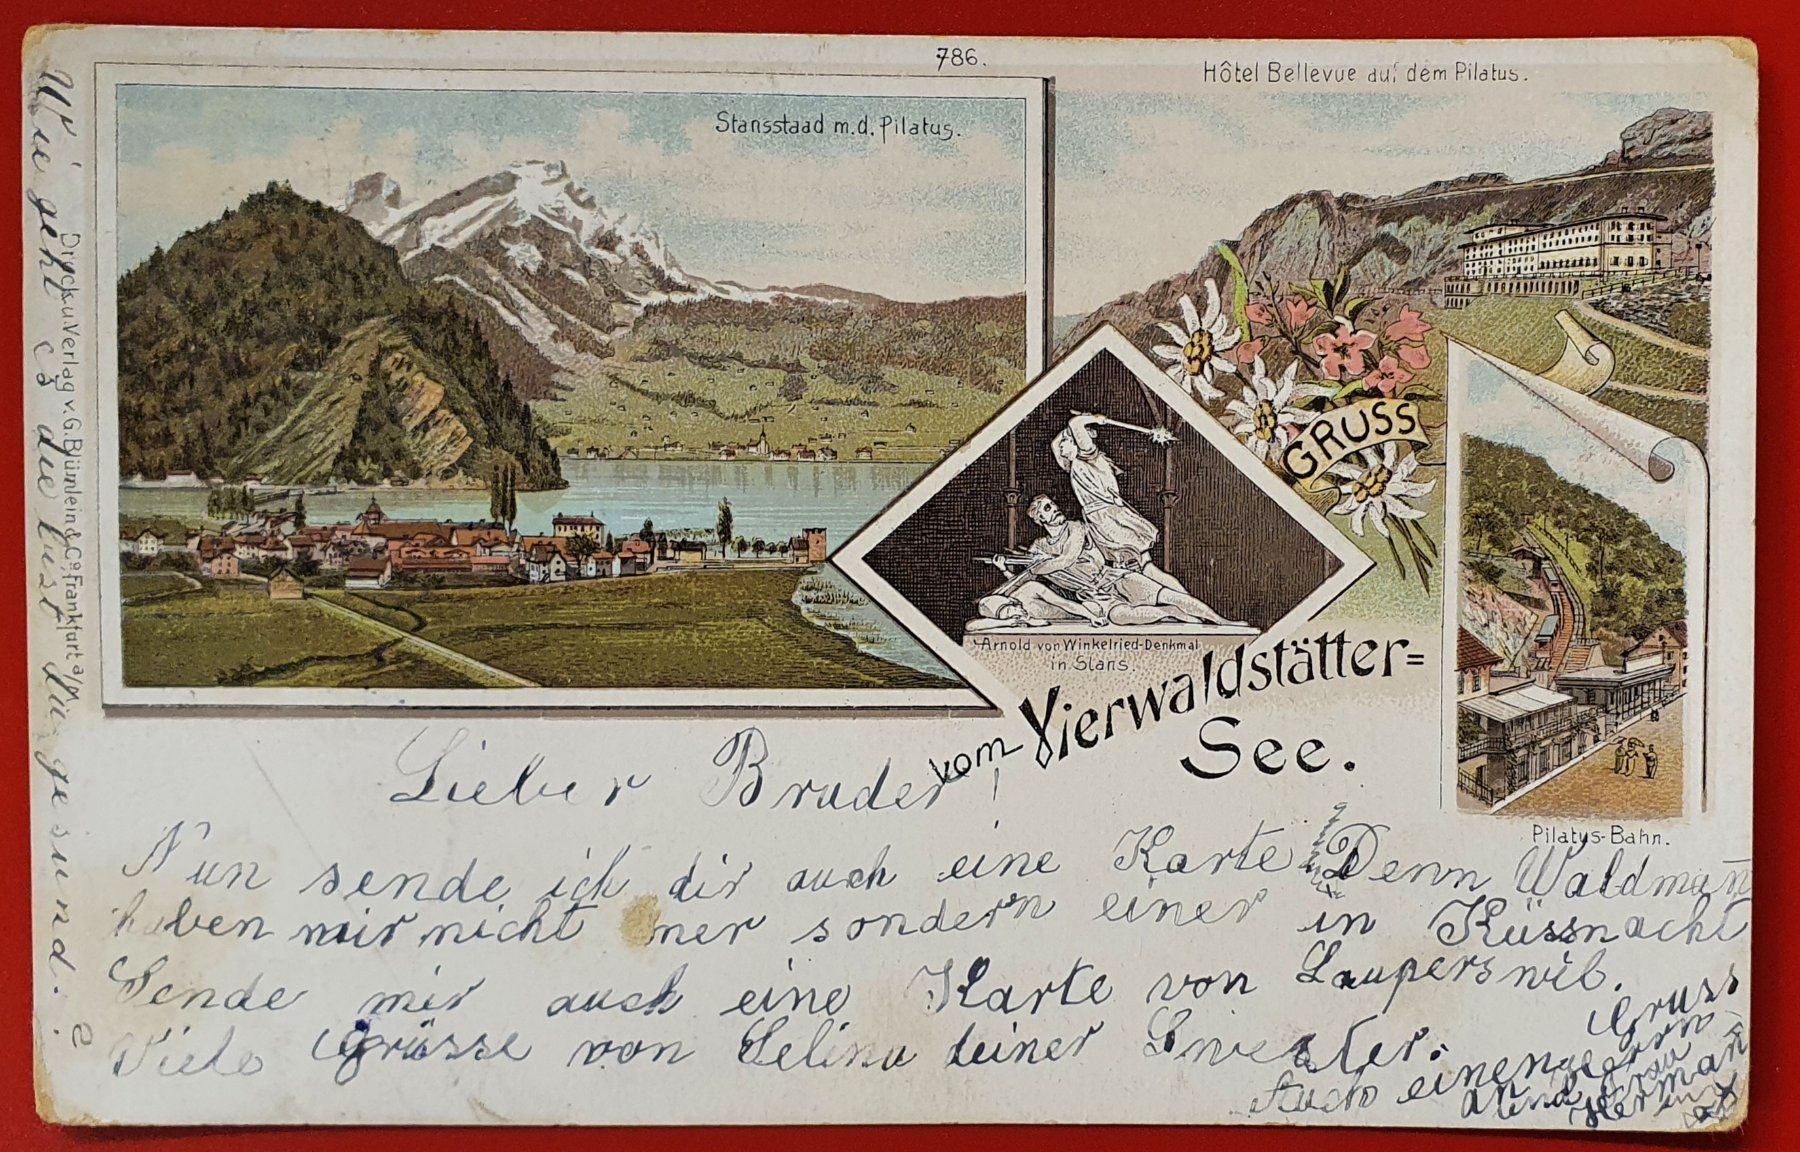 786.
Hôtel Bellevue auf dem Pilatus.
Stansstaad m.d. Pilatus.
GRUSS
Arnold von Winkelried-Denkmal
in Stans.
vom Vierwaldstätter=
See.
Pilatus-Bahn.
Druck u. Verlag v. G. Blümlein & Co. Frankfurt a/M
Lieber Bruder!
Nun sende ich dir auch eine Karte Denn Waldman̄
haben mir nicht mer sondern einer in Küssnacht
Sende mir auch eine Karte von Lauperswil.
Viele Grüsse von Selina deiner Swester.
Gruss
Auch einen
an
Frau
Herman
Wie geht es die bist du gesund. ?